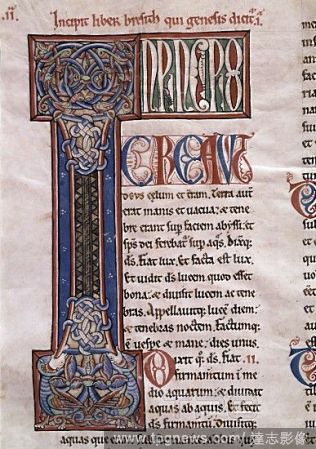 .II. Incipit liber bresith qui genesis dicit̃. I.
IN PRINCIPIO
CREAVIT
deus cęlum et t̃ram. Terra aut̃
erat inanis et vacua: & tene
bre erant sup faciem abyssi: et
sp̄s dei ferebat̃ sup aq̃s. Dixq;
d̄s. Fiat lux. et facta est lux.
Et vidit d̄s lucem quod esset
bona: & divisit lucem ac tene
bras. Appellavitq; lucē diem:
& tenebras noctem. Factumq;
ē vespe & mane: dies unus.
Dixit q̃. d̄s. fiat .II.
firmamentū in me
dio aquarum: & dividat
aquas ab aquis. et fecit
d̄s firmam̄tum: divisitq;
aquas que
www.tpgnews.com 達志影像